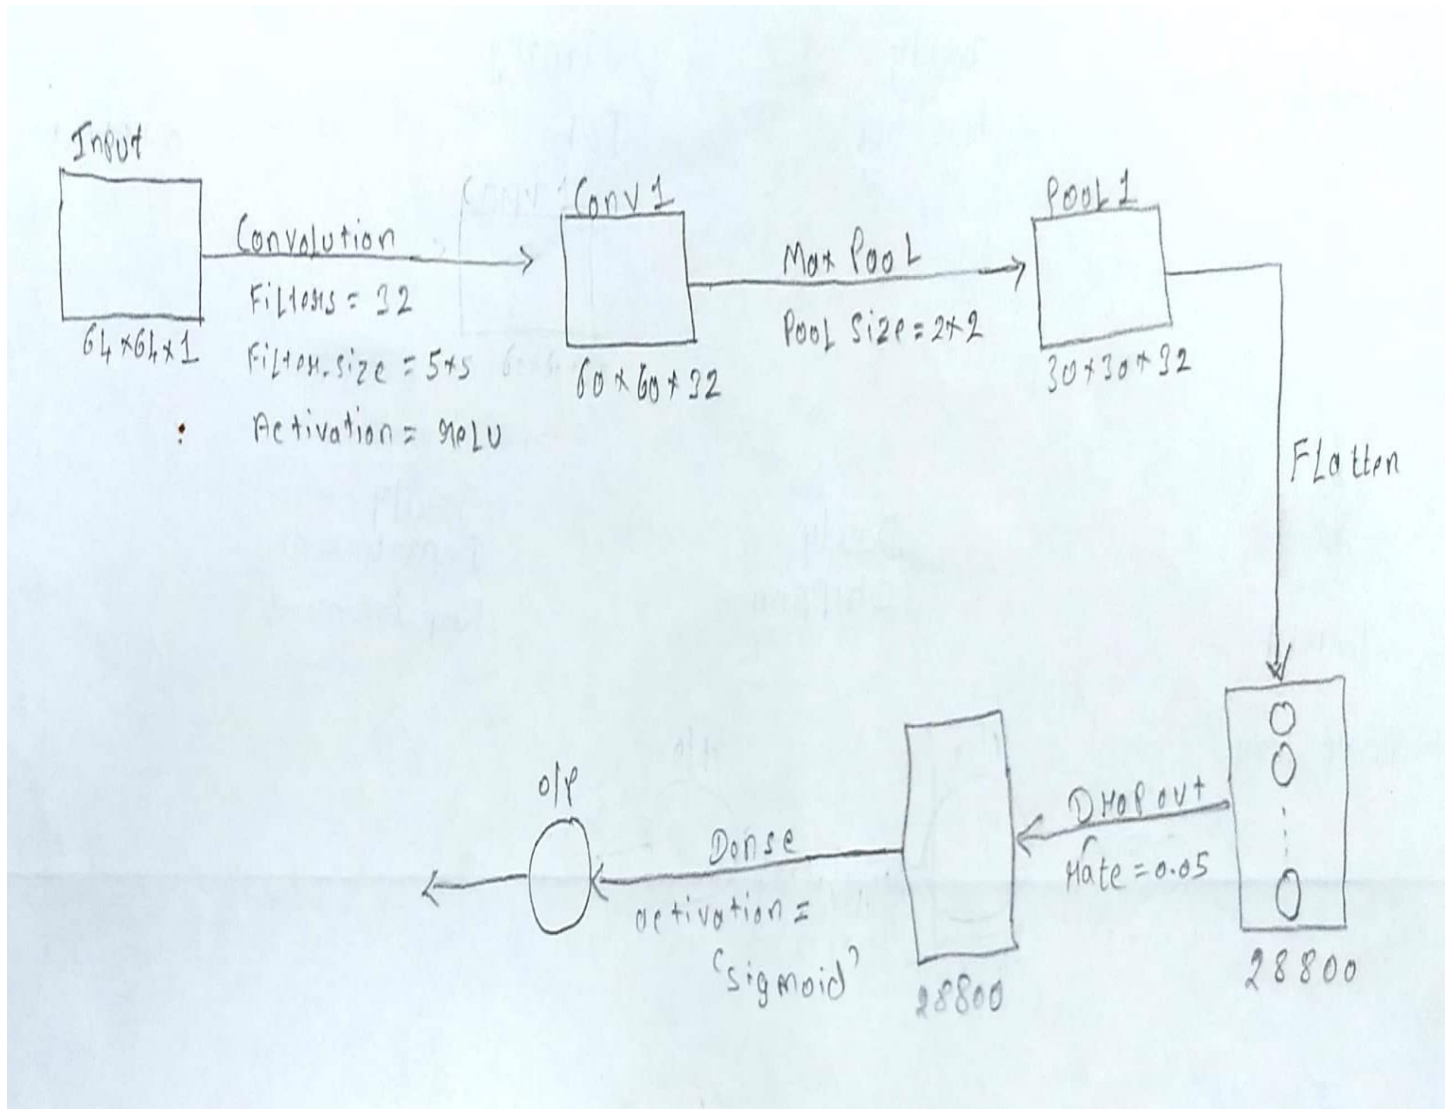 Input
64×64×1
Convolution
Filters = 32
Filter.size = 5×5
Activation = relu
Conv 1
60×60×32
Max Pool
Pool Size = 2×2
Pool 1
30×30×32
Flatten
28800
Dropout
rate = 0.05
28800
Dense
activation =
'sigmoid'
o/p